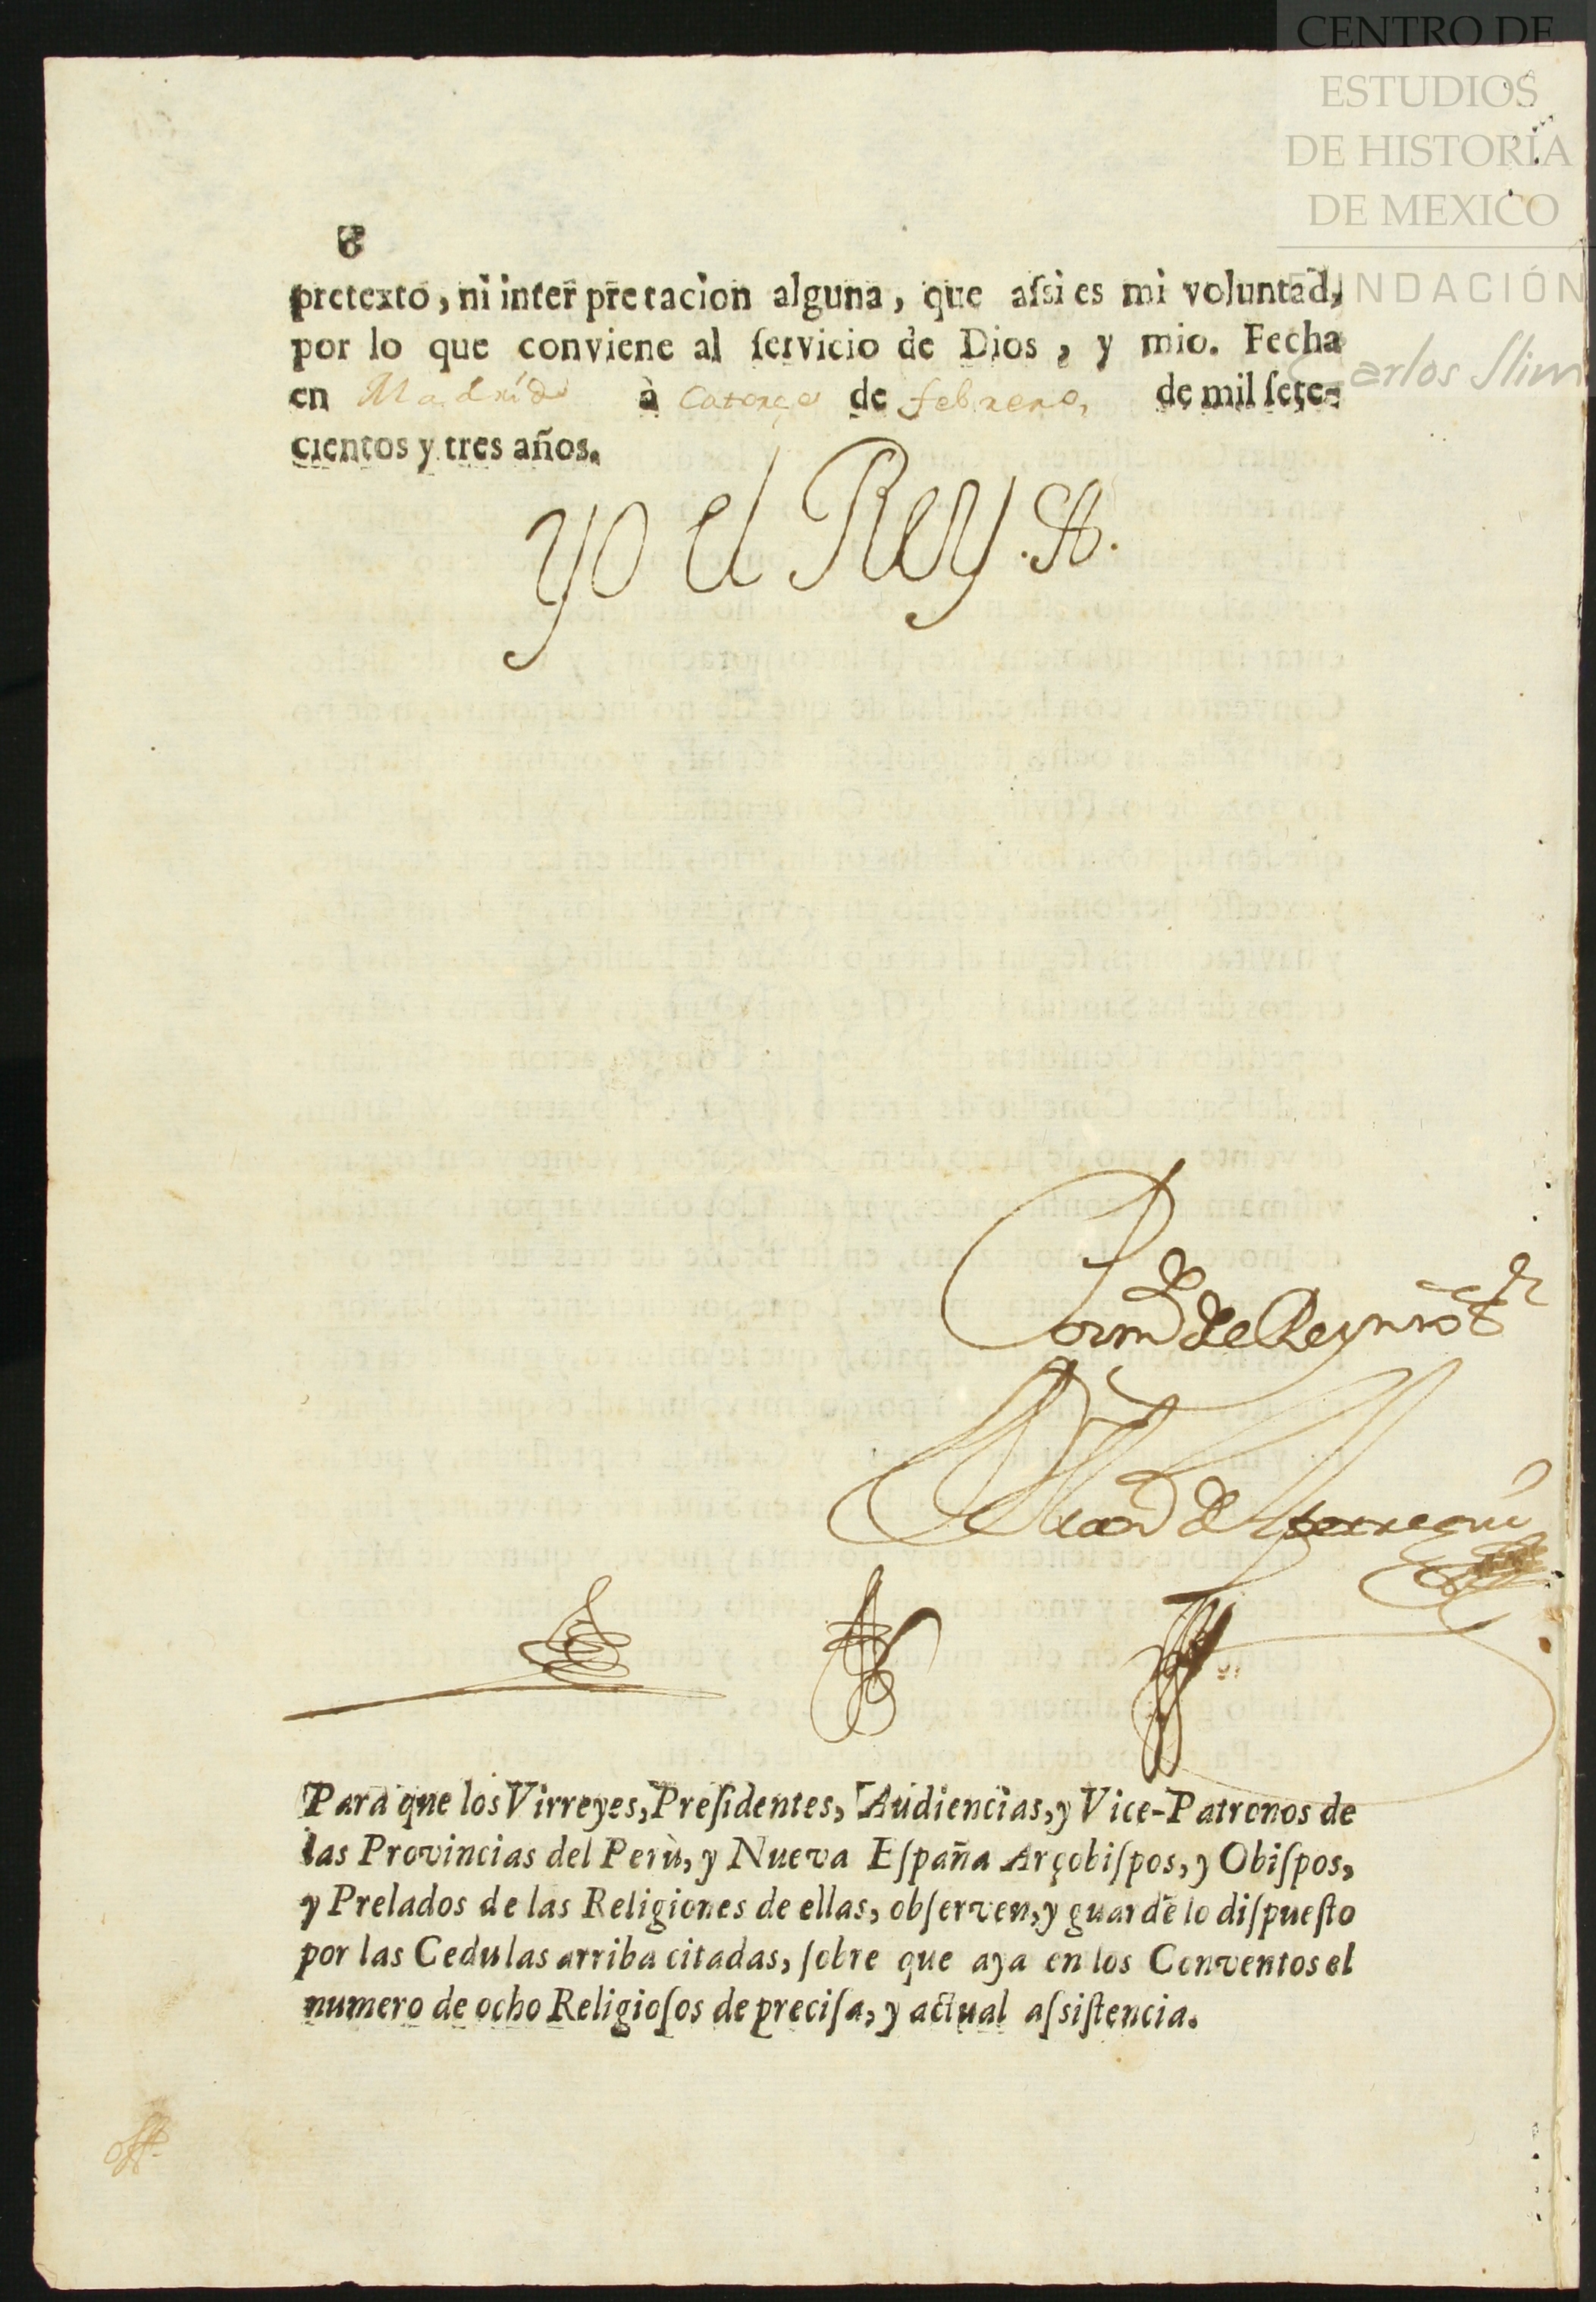 CENTRO DE
ESTUDIOS
DE HISTORIA
DE MEXICO
FUNDACIÓN
Carlos Slim
pretexto, ni interpretacion alguna, que aſsi es mi voluntad,
por lo que conviene al ſervicio de Dios, y mio. Fecha
en Madrid à Catorçe de febrero, de mil ſete-
cientos y tres años.
Yo el Rey
Por mdo del Rey nro sr
Para que los Virreyes, Preſidentes, Audiencias, y Vice-Patronos de
las Provincias del Perù, y Nueva Eſpaña Arçobiſpos, y Obiſpos,
y Prelados de las Religiones de ellas, obſerven, y guardẽ lo diſpueſto
por las Cedulas arriba citadas, ſobre que aya en los Conventos el
numero de ocho Religioſos de preciſa, y actual aſsiſtencia.